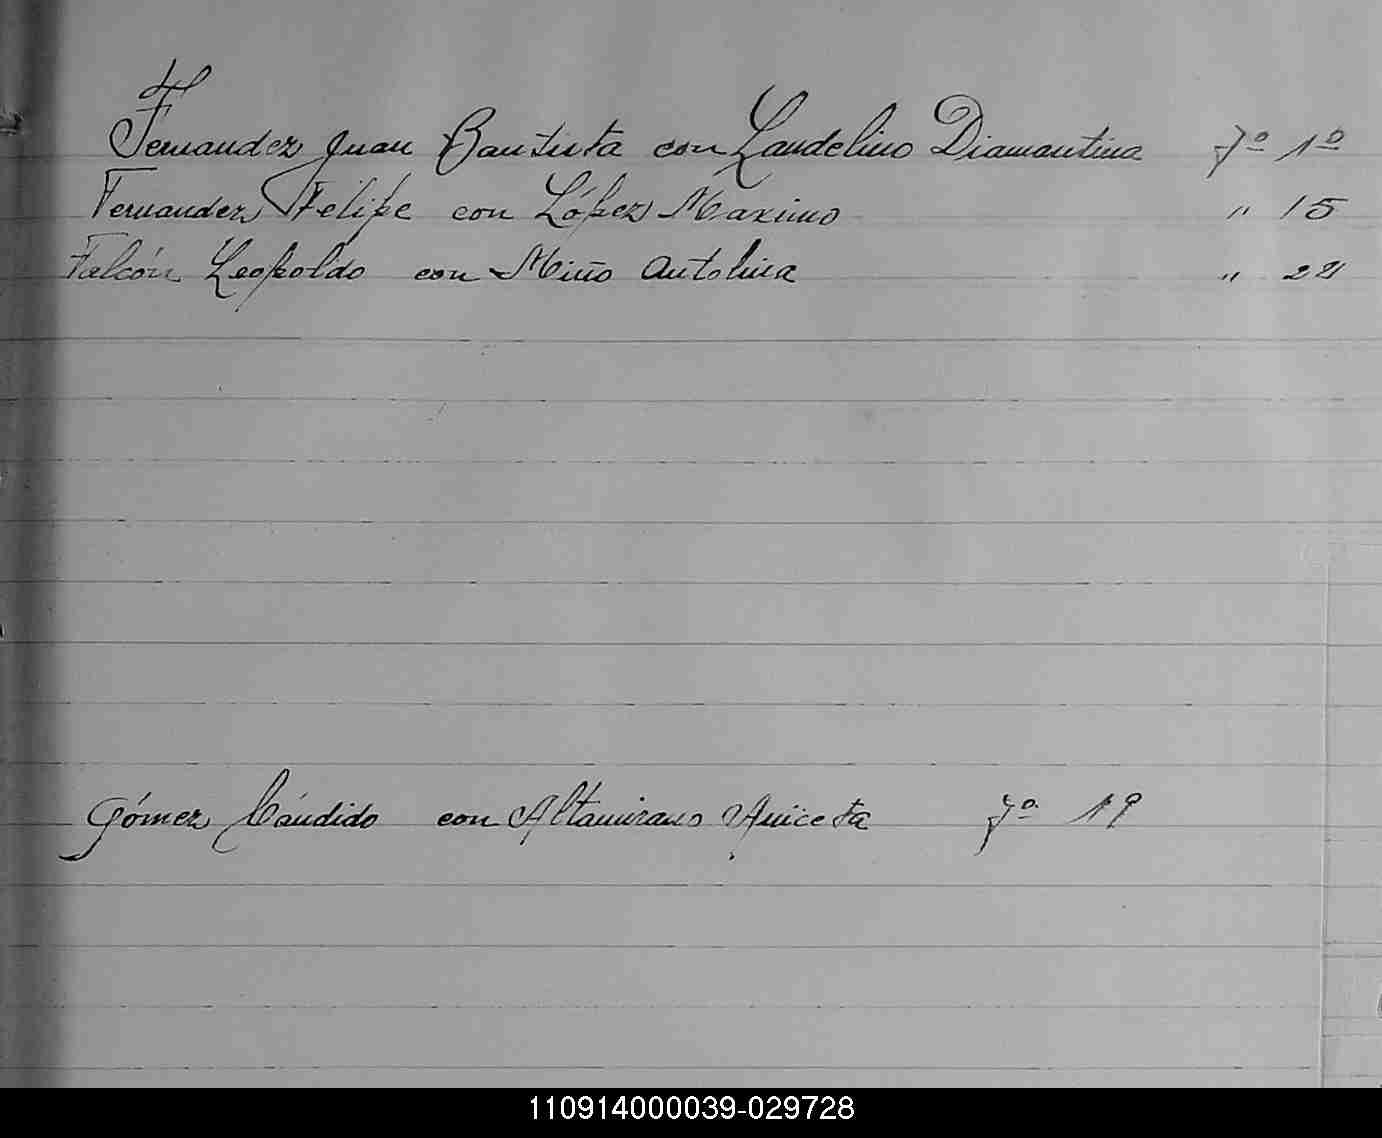 Fernandez Juan Bautista con Landelino Diamantina fº 1º
Fernandez Felipe con López Maximo " 15
Falcón Leopoldo con Miño Antolina " 22
Gómez Cándido con Altamirano Aniceta fº 19
110914000039-029728